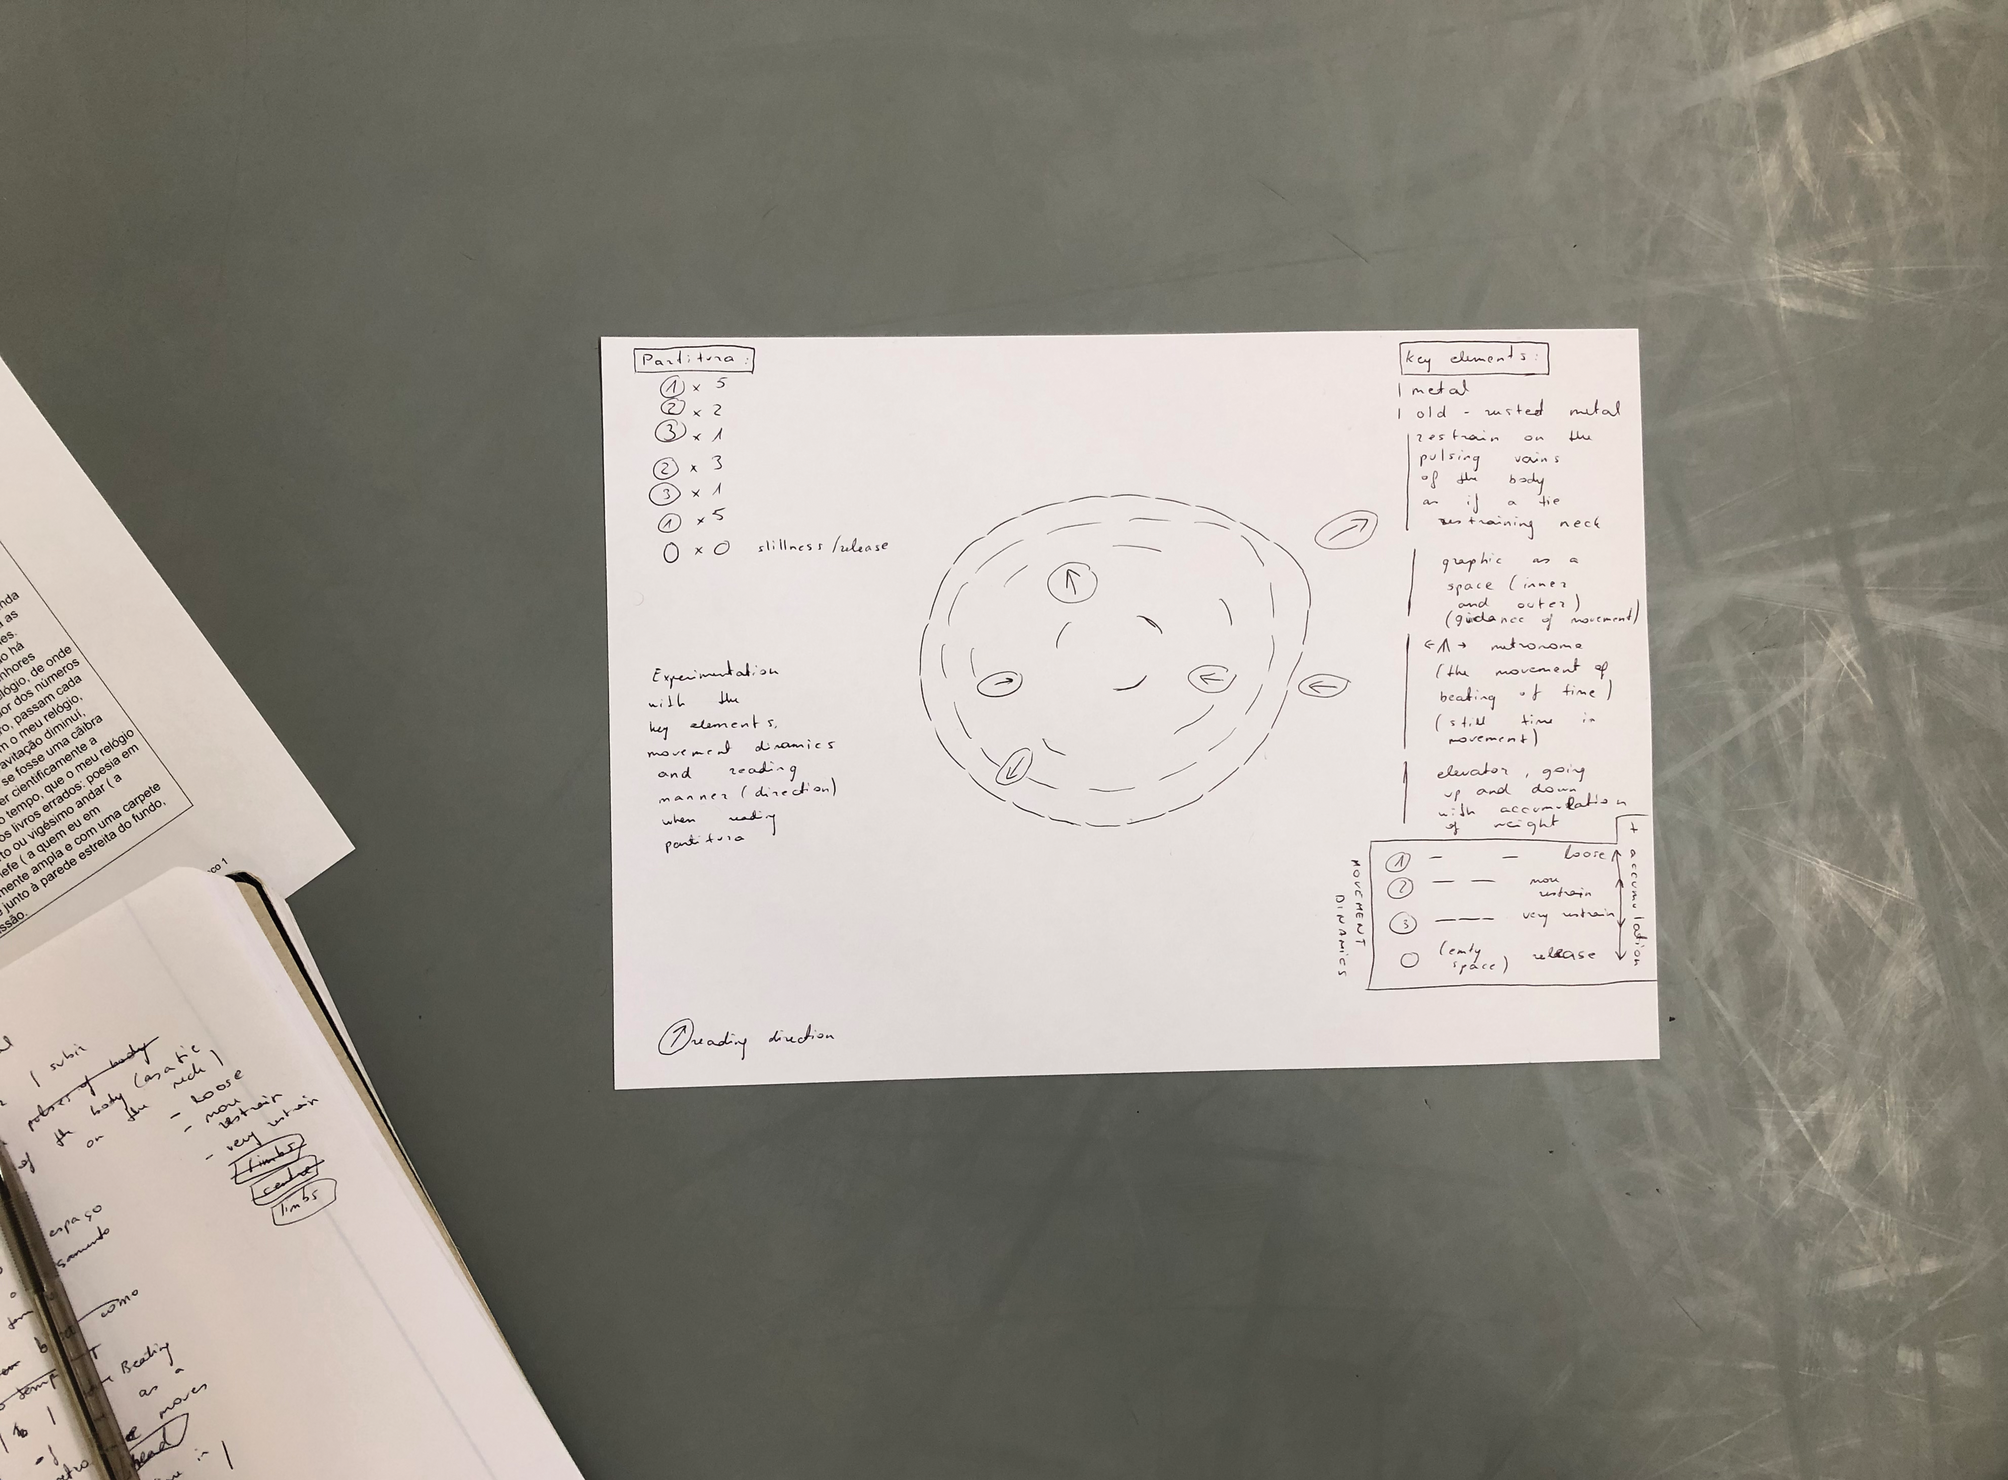 Partitura:
① x 5
② x 2
③ x 1
② x 3
③ x 1
① x 5
0 x 0 stillness/release
Experimentation
with the
key elements,
movement dinamics
and reading
manner (direction)
when reading
partitura
↑ reading direction
Key elements:
| metal
| old - rusted metal
restrain on the
pulsing vains
of the body
as if a tie
restraining neck
graphic as a
space (inner
and outer)
(guidance of movement)
← → metronome
(the movement of
beating of time)
(still time in
movement)
elevator, going
up and down
with accumulation
of weight
MOVEMENT
DINAMICS
① – – loose
② – – more
restrain
③ – – – very restrain
○ (emty
space) release
+ accumulation
nda
a as
es.
o há
nhores
lógio, de onde
or dos números
ro, passam cada
m o meu relógio,
avitação diminuí,
se fosse uma cãibra
er cientificamente a
o tempo, que o meu relógio
os livros errados: poesia em
to ou vigésimo andar ( a
efe ( a quem eu em
mente ampla e com uma carpete
e junto à parede estreita do fundo,
ssão.
ço 1
| subir
pulses of body
of the body (as a tie
on the neck)
- Loose
- more
restrain
- very restrain
limbs
centre
limbs
espaço
samento
como
Beating
as a
moves
head
in |